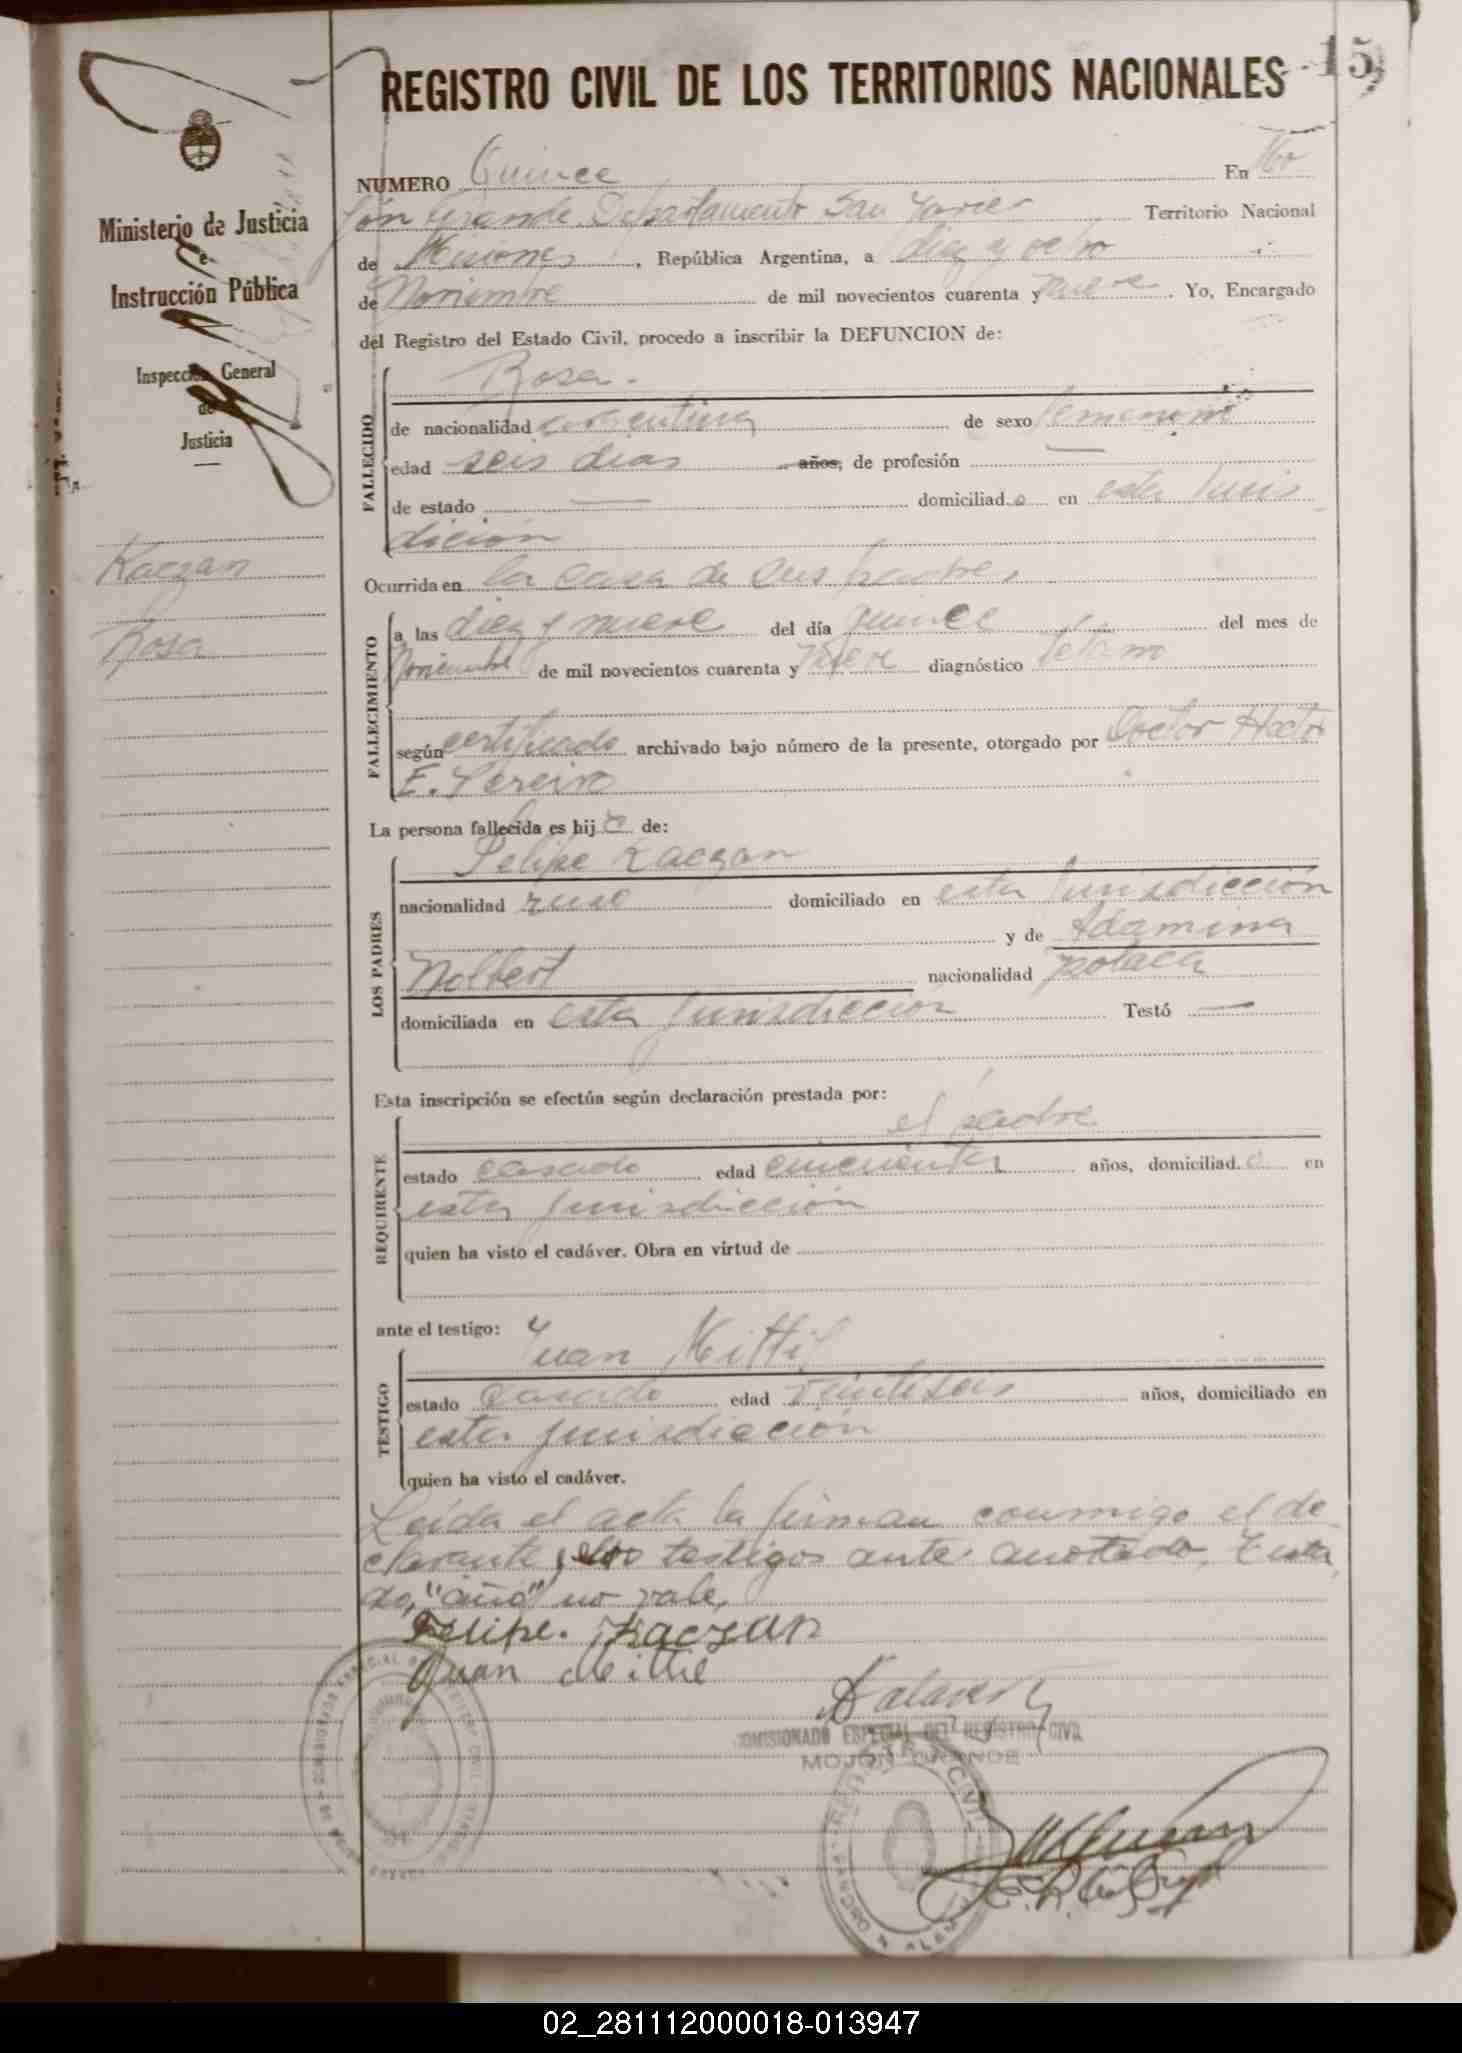 REGISTRO CIVIL DE LOS TERRITORIOS NACIONALES
15
Ministerio de Justicia
e
Instrucción Pública
Inspección General
de
Justicia
Kaczan
Rosa
NUMERO Quince En Mo
jón Grande Departamento San Javier Territorio Nacional
de Misiones, República Argentina, a diez y ocho
de Noviembre de mil novecientos cuarenta y nueve. Yo, Encargado
del Registro del Estado Civil, procedo a inscribir la DEFUNCION de:
FALLECIDO
Rosa.
de nacionalidad argentina de sexo femenino
edad seis dias años, de profesión —
de estado — domiciliad.a en esta juris
dicion
Ocurrida en la casa de sus padres
FALLECIMIENTO
a las diez y nueve del día quince del mes de
Noviembre de mil novecientos cuarenta y nueve diagnóstico Tétano
según certificado archivado bajo número de la presente, otorgado por Doctor Hector
E. Pereira
La persona fallecida es hij a de:
LOS PADRES
Felipe Kaczan
nacionalidad ruso domiciliado en esta jurisdicción
y de Adamina
Nolbert nacionalidad polaca
domiciliada en esta jurisdicción Testó —
Esta inscripción se efectúa según declaración prestada por:
REQUIRENTE
el padre
estado casado edad cincuenta años, domiciliad.o en
esta jurisdicción
quien ha visto el cadáver. Obra en virtud de
ante el testigo:
TESTIGO
Juan Mittil
estado casado edad veintiseis años, domiciliado en
esta jurisdicción
quien ha visto el cadáver.
Leída el acta la firman conmigo el de
clarante y los testigos antes anotado, Testa
do, "año" no vale,
Felipe. Kaczan
Juan Mittil
COMISIONADO ESPECIAL DEL REGISTRO CIVIL
MOJON GRANDE
02_281112000018-013947